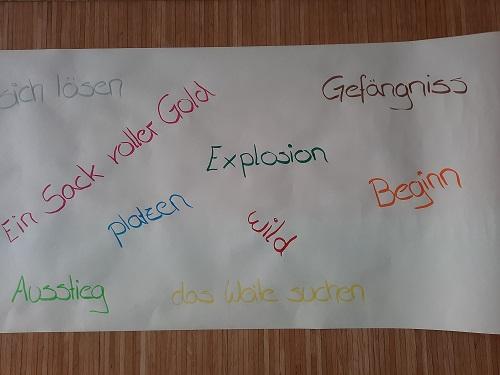 sich lösen
Gefängniss
Ein Sack voller Gold
Explosion
platzen
Beginn
wild
Ausstieg
das Weite suchen